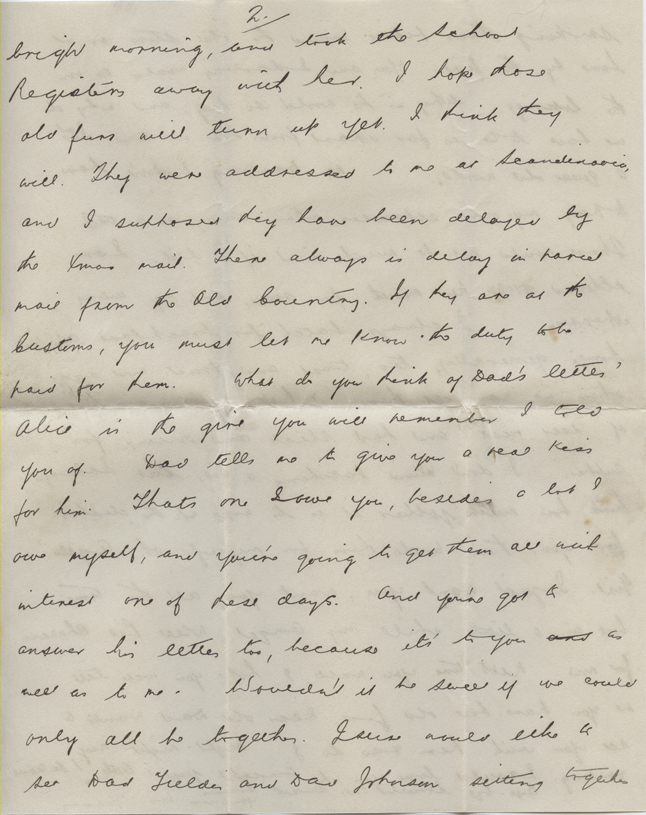 2.
bright morning, and took the School
Registers away with her. I hope those
old furs will turn up yet. I think they
will. They were addressed to me at Scandinavia,
and I supposed they have been delayed by
the Xmas mail. There always is delay in parcel
mail from the Old Country. If they are at the
Customs, you must let me know the duty to be
paid for them. What do you think of Dad's letter?
Alice is the girl you will remember I told
you of. Dad tells me to give you a real kiss
for him. Thats one I owe you, besides a lot I
owe myself, and you're going to get them all with
interest one of these days. And you've got to
answer his letter too, because it's to you and as
well as to me. Wouldn't it be sweet if we could
only all be together. I sure would like to
see Dad Fielder and Dad Johnson sitting together